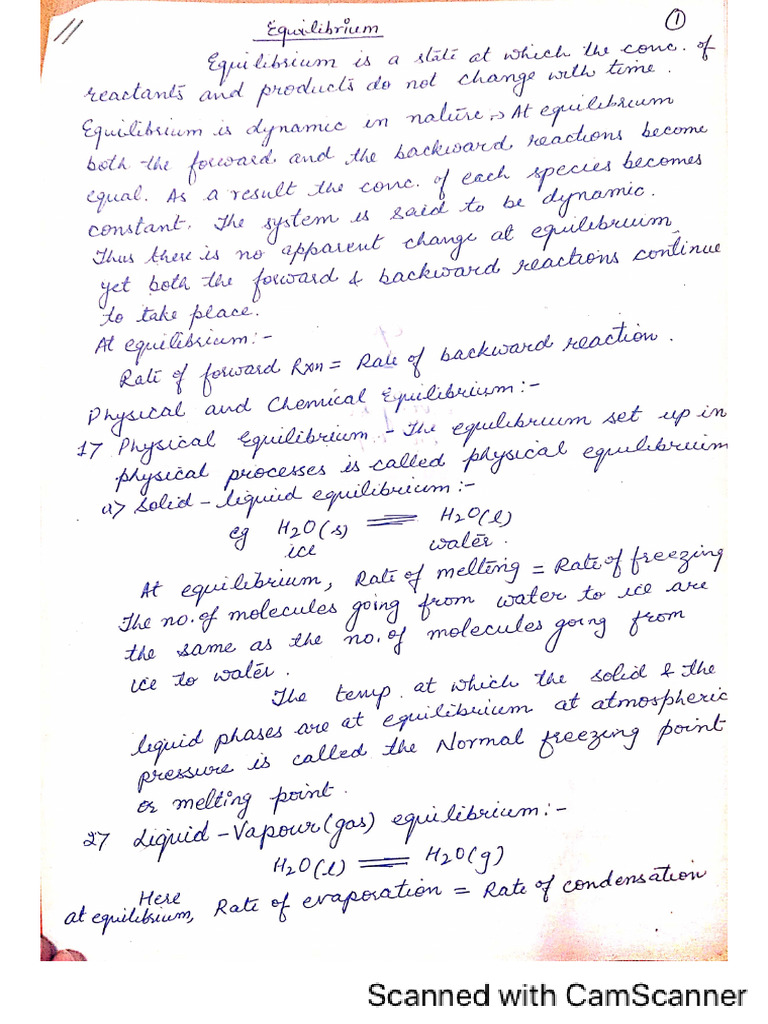 Equilibrium
1
Equilibrium is a state at which the conc. of
reactants and products do not change with time.
Equilibrium is dynamic in nature → At equilibrium
both the forward and the backward reactions become
equal. As a result the conc. of each species becomes
constant. The system is said to be dynamic.
Thus there is no apparent change at equilibrium
yet both the forward & backward reactions continue
to take place.
At equilibrium:-
Rate of forward Rxn = Rate of backward reaction.
Physical and Chemical Equilibrium:-
1> Physical Equilibrium - The equilibrium set up in
physical processes is called physical equilibrium
a> Solid - liquid equilibrium:-
eg H2O(s) ⇌ H2O(l)
ice water.
At equilibrium, Rate of melting = Rate of freezing
The no. of molecules going from water to ice are
the same as the no. of molecules going from
ice to water.
The temp. at which the solid & the
liquid phases are at equilibrium at atmospheric
pressure is called the Normal freezing point
or melting point.
2> Liquid - Vapour (gas) equilibrium:-
H2O(l) ⇌ H2O(g)
Here
at equilibrium, Rate of evaporation = Rate of condensation
Scanned with CamScanner